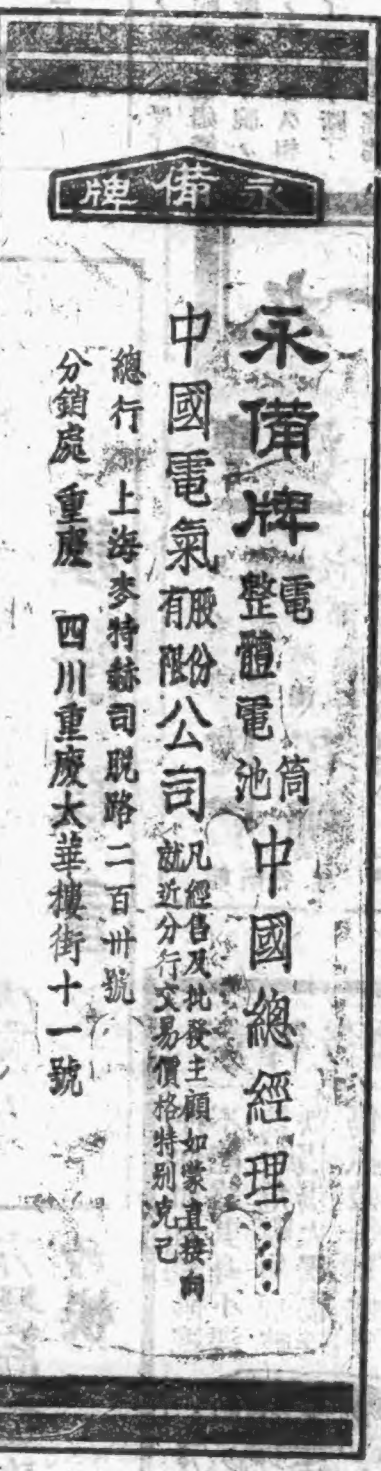 永備牌
永備牌 電筒 整體電池 中國總經理……
中國電氣股份有限公司 凡經售及批發主顧如蒙直接向就近分行交易價格特別克己
總行 上海麥特赫司脱路二百卅號
分銷處 重慶 四川重慶太華樓街十一號